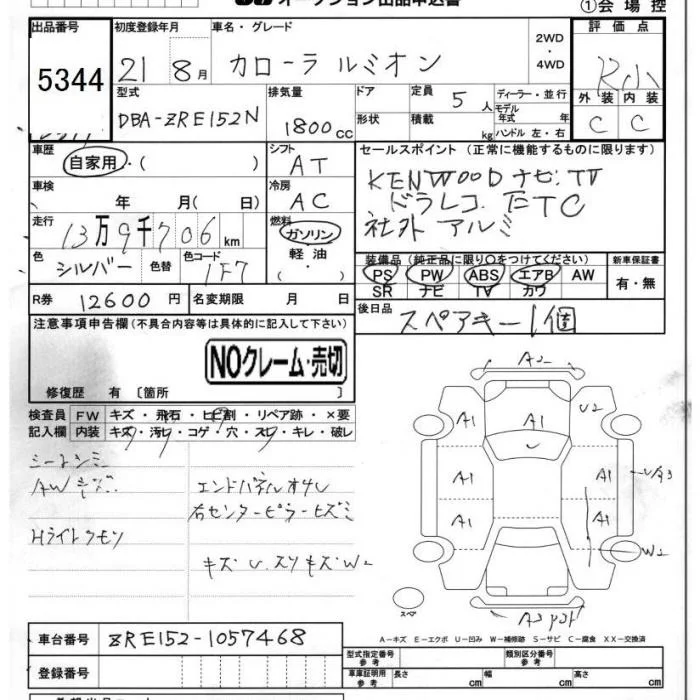 オークション出品申込書
①会場控
出品番号
5344
初度登録年月
21 8月
車名・グレード
カローラ ルミオン
2WD
・
4WD
評価点
R小
型式
DBA-ZRE152N
排気量
1800cc
ドア
形状
定員 5 人
積載 kg
ディーラー・並行
モデル年式 年
ハンドル 左・右
外装 内装
C C
車歴
自家用・( )
シフト
AT
セールスポイント (正常に機能するものに限ります)
KENWOODナビ.TV
ドラレコ. ETC
社外アルミ
車検
年 月( 日)
冷房
AC
走行
13万9千706km
燃料
ガソリン
軽油
・( )
色
シルバー
色替
色コード
1F7
装備品 (純正品に限り○をつけてください)
PS PW ABS エアB AW
SR ナビ TV カワ
新車保証書
有・無
R券 12600円
名変期限 月 日
後日品
スペアキー1個
注意事項申告欄(不具合内容等は具体的に記入して下さい)
NOクレーム・売切
修復歴 有 〔箇所 〕
検査員記入欄
FW キズ・飛石・ヒビ割・リペア跡・×要
内装 キズ・汚レ・コゲ・穴・スレ・キレ・破レ
シートシミ
AWキズ
Hライトクモリ
エンドパネルオサレ
右センターピラーヒズミ
キズ U. スリキズ W2
A2
A1
A1
U2
A1
A1
UA3
A1
A1
W2
スペア
A-キズ E-エクボ U-凹み W-補修跡 S-サビ C-腐食 XX-交換済
車台番号
ZRE152-1057468
登録番号
型式指定番号
参考
類別区分番号
参考
車庫証明用
参考
長さ cm
幅 cm
高さ cm